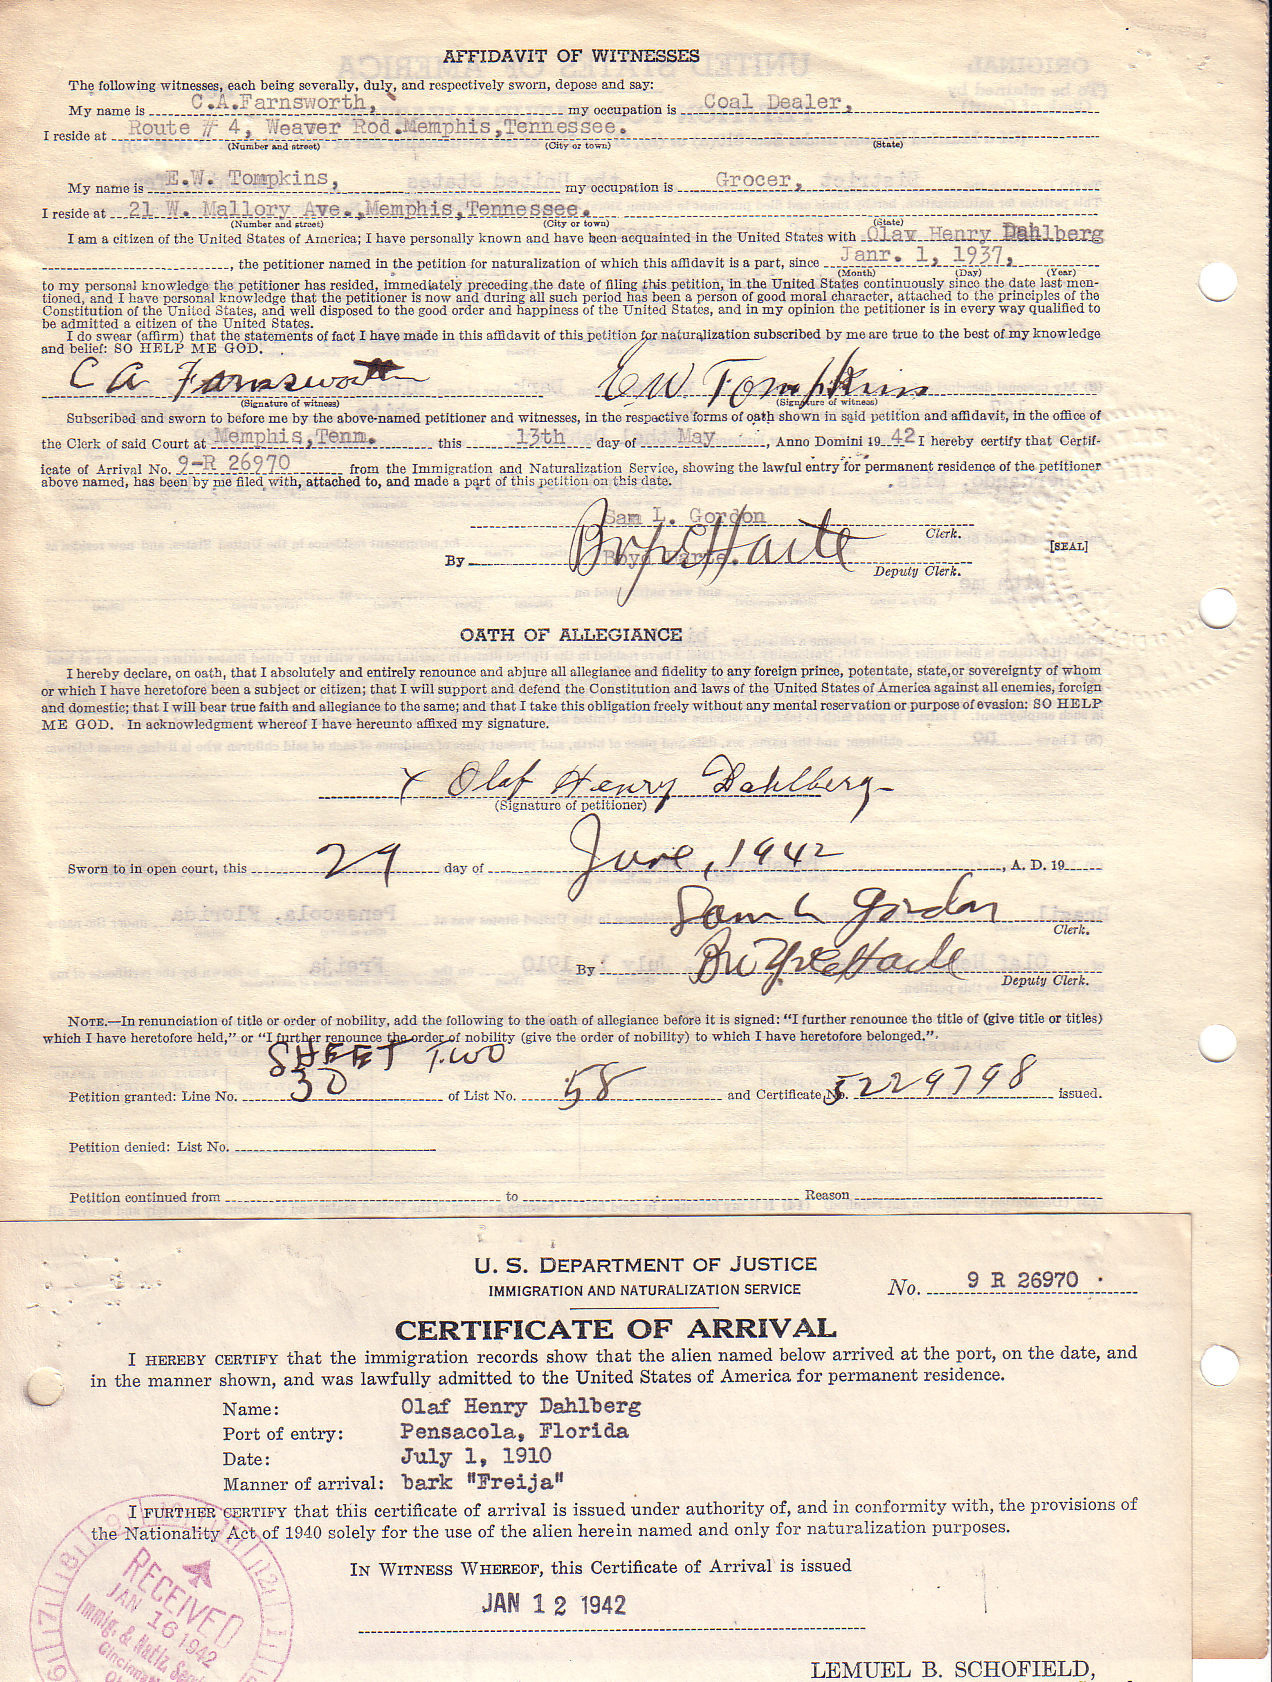 AFFIDAVIT OF WITNESSES
The following witnesses, each being severally, duly, and respectively sworn, depose and say:
My name is C.A.Farnsworth, my occupation is Coal Dealer,
I reside at Route # 4, Weaver Rod.Memphis,Tennessee.
(Number and street) (City or town) (State)
My name is E.W. Tompkins, my occupation is Grocer,
I reside at 21 W. Mallory Ave.,Memphis,Tennessee.
(Number and street) (City or town) (State)
I am a citizen of the United States of America; I have personally known and have been acquainted in the United States with Olav Henry Dahlberg
, the petitioner named in the petition for naturalization of which this affidavit is a part, since Janr. 1, 1937,
(Month) (Day) (Year)
to my personal knowledge the petitioner has resided, immediately preceding the date of filing this petition, in the United States continuously since the date last men-
tioned, and I have personal knowledge that the petitioner is now and during all such period has been a person of good moral character, attached to the principles of the
Constitution of the United States, and well disposed to the good order and happiness of the United States, and in my opinion the petitioner is in every way qualified to
be admitted a citizen of the United States.
I do swear (affirm) that the statements of fact I have made in this affidavit of this petition for naturalization subscribed by me are true to the best of my knowledge
and belief: SO HELP ME GOD.
C A Farnsworth E.W. Tompkins
(Signature of witness) (Signature of witness)
Subscribed and sworn to before me by the above-named petitioner and witnesses, in the respective forms of oath shown in said petition and affidavit, in the office of
the Clerk of said Court at Memphis,Tenn. this 13th day of May , Anno Domini 19 42 I hereby certify that Certif-
icate of Arrival No. 9-R 26970 from the Immigration and Naturalization Service, showing the lawful entry for permanent residence of the petitioner
above named, has been by me filed with, attached to, and made a part of this petition on this date.
Sam L. Gordon
Clerk.
[SEAL]
By Boyd Harte
Deputy Clerk.
OATH OF ALLEGIANCE
I hereby declare, on oath, that I absolutely and entirely renounce and abjure all allegiance and fidelity to any foreign prince, potentate, state, or sovereignty of whom
or which I have heretofore been a subject or citizen; that I will support and defend the Constitution and laws of the United States of America against all enemies, foreign
and domestic; that I will bear true faith and allegiance to the same; and that I take this obligation freely without any mental reservation or purpose of evasion: SO HELP
ME GOD. In acknowledgment whereof I have hereunto affixed my signature.
x Olaf Henry Dahlberg
(Signature of petitioner)
Sworn to in open court, this 29 day of June, 1942 , A. D. 19
Sam L Gordon
Clerk.
By
Deputy Clerk.
NOTE.—In renunciation of title or order of nobility, add the following to the oath of allegiance before it is signed: "I further renounce the title of (give title or titles)
which I have heretofore held," or "I further renounce the order of nobility (give the order of nobility) to which I have heretofore belonged."
SHEET TWO
Petition granted: Line No. 30 of List No. 58 and Certificate No. 5229798 issued.
Petition denied: List No.
Petition continued from to Reason
U. S. DEPARTMENT OF JUSTICE
IMMIGRATION AND NATURALIZATION SERVICE
No. 9 R 26970
CERTIFICATE OF ARRIVAL
I HEREBY CERTIFY that the immigration records show that the alien named below arrived at the port, on the date, and
in the manner shown, and was lawfully admitted to the United States of America for permanent residence.
Name: Olaf Henry Dahlberg
Port of entry: Pensacola, Florida
Date: July 1, 1910
Manner of arrival: bark "Freija"
I FURTHER CERTIFY that this certificate of arrival is issued under authority of, and in conformity with, the provisions of
the Nationality Act of 1940 solely for the use of the alien herein named and only for naturalization purposes.
IN WITNESS WHEREOF, this Certificate of Arrival is issued
JAN 12 1942
RECEIVED
JAN 16 1942
Immig. & Natlz. Serv
Cincinnati
LEMUEL B. SCHOFIELD,